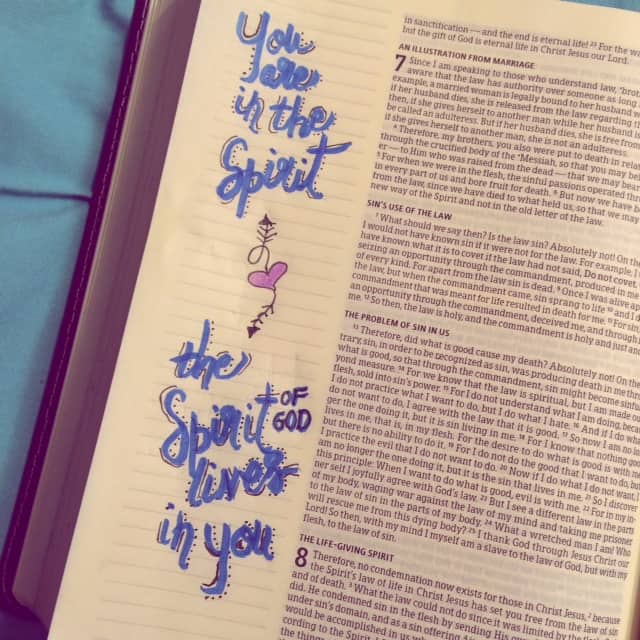 You
are
in the
Spirit
the
Spirit OF
GOD
lives
in you
in sanctification — and the end is eternal life! 23 For the
but the gift of God is eternal life in Christ Jesus our Lord.
AN ILLUSTRATION FROM MARRIAGE
7 Since I am speaking to those who understand law,
aware that the law has authority over someone as long
example, a married woman is legally bound to her husband
if her husband dies, she is released from the law regarding
then, if she gives herself to another man while her husband
be called an adulteress. But if her husband dies, she is free from
if she gives herself to another man, she is not an adulteress.
4 Therefore, my brothers, you also were put to death in
through the crucified body of the Messiah, so that you may
er — to Him who was raised from the dead — that we may
5 For when we were in the flesh, the sinful passions operated
in every part of us and bore fruit for death. 6 But now we have
from the law, since we have died to what held us, so that we may
new way of the Spirit and not in the old letter of the law.
SIN'S USE OF THE LAW
7 What should we say then? Is the law sin? Absolutely not! On the
I would not have known sin if it were not for the law. For example,
have known what it is to covet if the law had not said, Do not covet.
seizing an opportunity through the commandment, produced in
of every kind. For apart from the law sin is dead. 9 Once I was alive
the law, but when the commandment came, sin sprang to life 10 and I
commandment that was meant for life resulted in death for me. 11 For
an opportunity through the commandment, deceived me, and through
me. 12 So then, the law is holy, and the commandment is holy and just
THE PROBLEM OF SIN IN US
13 Therefore, did what is good cause my death? Absolutely not! On the
trary, sin, in order to be recognized as sin, was producing death in me
what is good, so that through the commandment, sin might become
yond measure. 14 For we know that the law is spiritual, but I am made
flesh, sold into sin's power. 15 For I do not understand what I am doing,
I do not practice what I want to do, but I do what I hate. 16 And if I do
do not want to do, I agree with the law that it is good. 17 So now I am no
ger the one doing it, but it is sin living in me. 18 For I know that nothing
lives in me, that is, in my flesh. For the desire to do what is good is with
but there is no ability to do it. 19 For I do not do the good that I want to do,
I practice the evil that I do not want to do. 20 Now if I do what I do not want,
am no longer the one doing it, but it is the sin that lives in me. 21 So I discover
this principle: When I want to do what is good, evil is with me. 22 For in my
ner self I joyfully agree with God's law. 23 But I see a different law in the parts
of my body, waging war against the law of my mind and taking me prisoner
to the law of sin in the parts of my body. 24 What a wretched man I am! Who
will rescue me from this dying body? 25 I thank God through Jesus Christ our
Lord! So then, with my mind I myself am a slave to the law of God, but with my
flesh, to the law of sin.
THE LIFE-GIVING SPIRIT
8 Therefore, no condemnation now exists for those in Christ Jesus, 2 because
the Spirit's law of life in Christ Jesus has set you free from the law of sin
and of death. 3 What the law could not do since it was limited by the flesh,
did. He condemned sin in the flesh by sending His own
under sin's domain, and as a sin offering,
would be accomplished in us who
cording to the Spirit.
the things